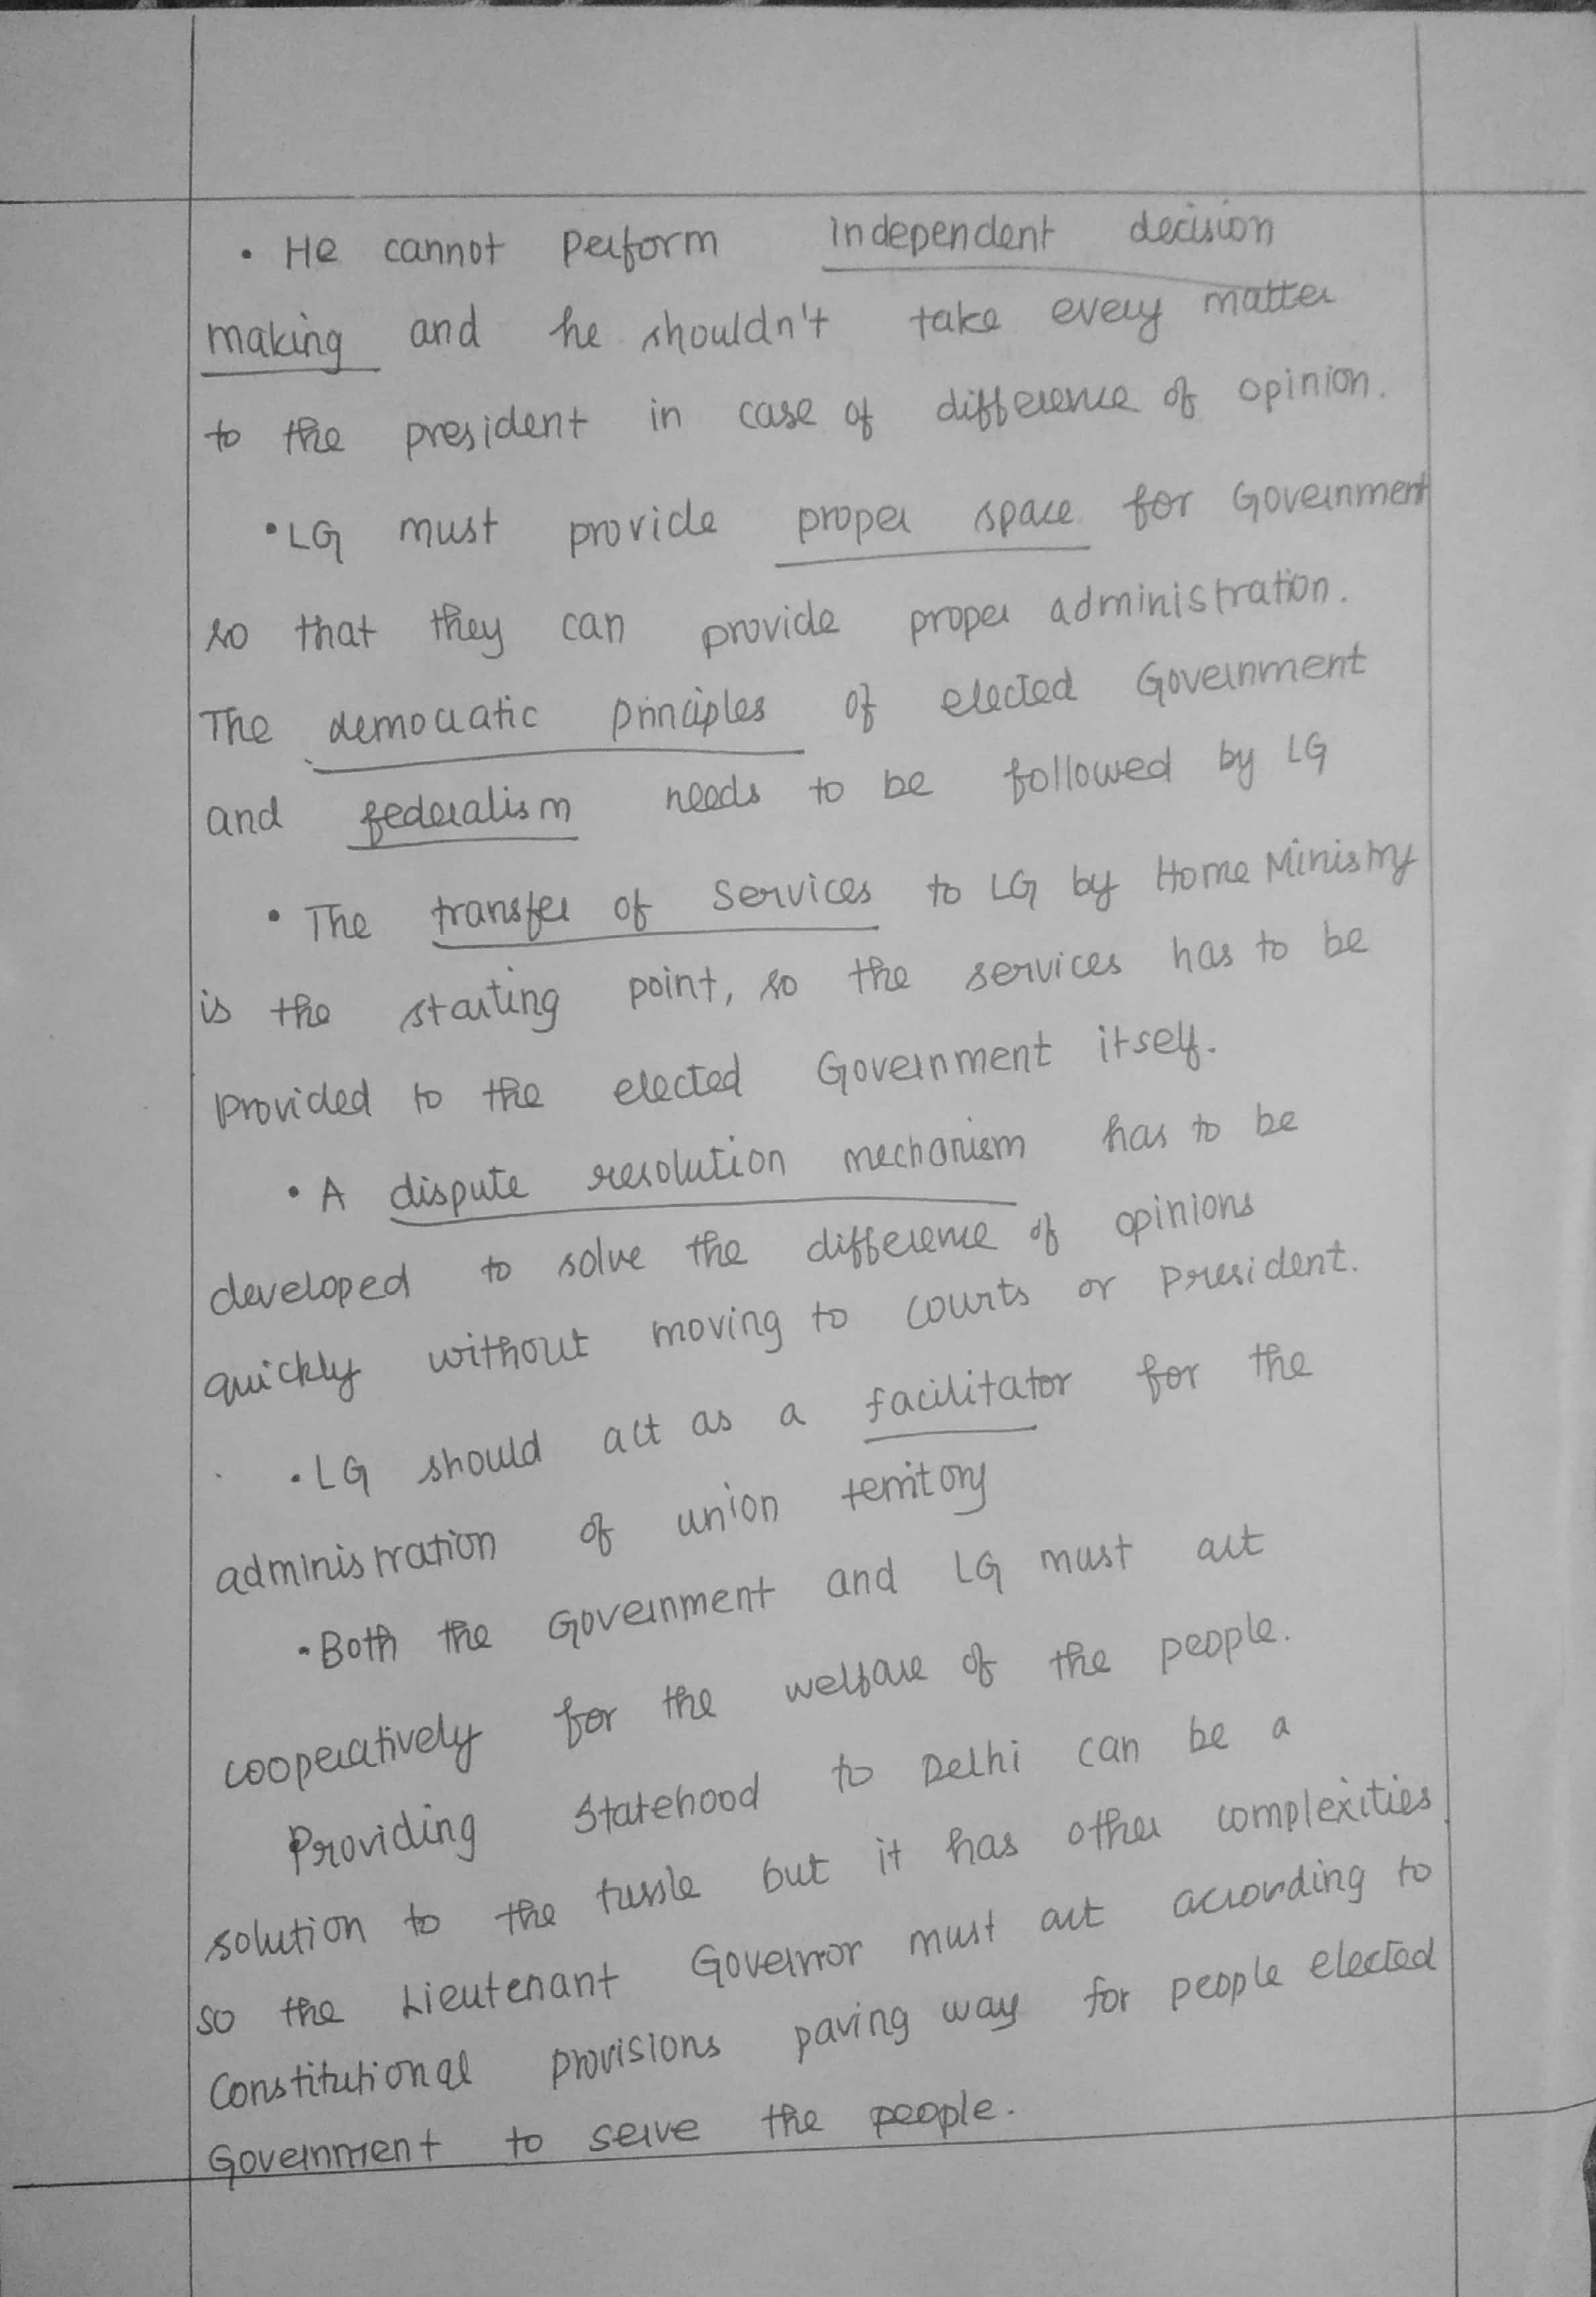 • He cannot perform independent decision
making and he shouldn't take every matter
to the president in case of difference of opinion.
• LG must provide proper space for Government
so that they can provide proper administration.
The democratic principles of elected Government
and federalism needs to be followed by LG
• The transfer of services to LG by Home Ministry
is the starting point, so the services has to be
provided to the elected Government itself.
• A dispute resolution mechanism has to be
developed to solve the difference of opinions
quickly without moving to courts or President.
• LG should act as a facilitator for the
administration of union territory
• Both the Government and LG must act
cooperatively for the welfare of the people.
Providing statehood to Delhi can be a
solution to the tussle but it has other complexities.
so the Lieutenant Governor must act according to
Constitutional provisions paving way for people elected
Government to serve the people.